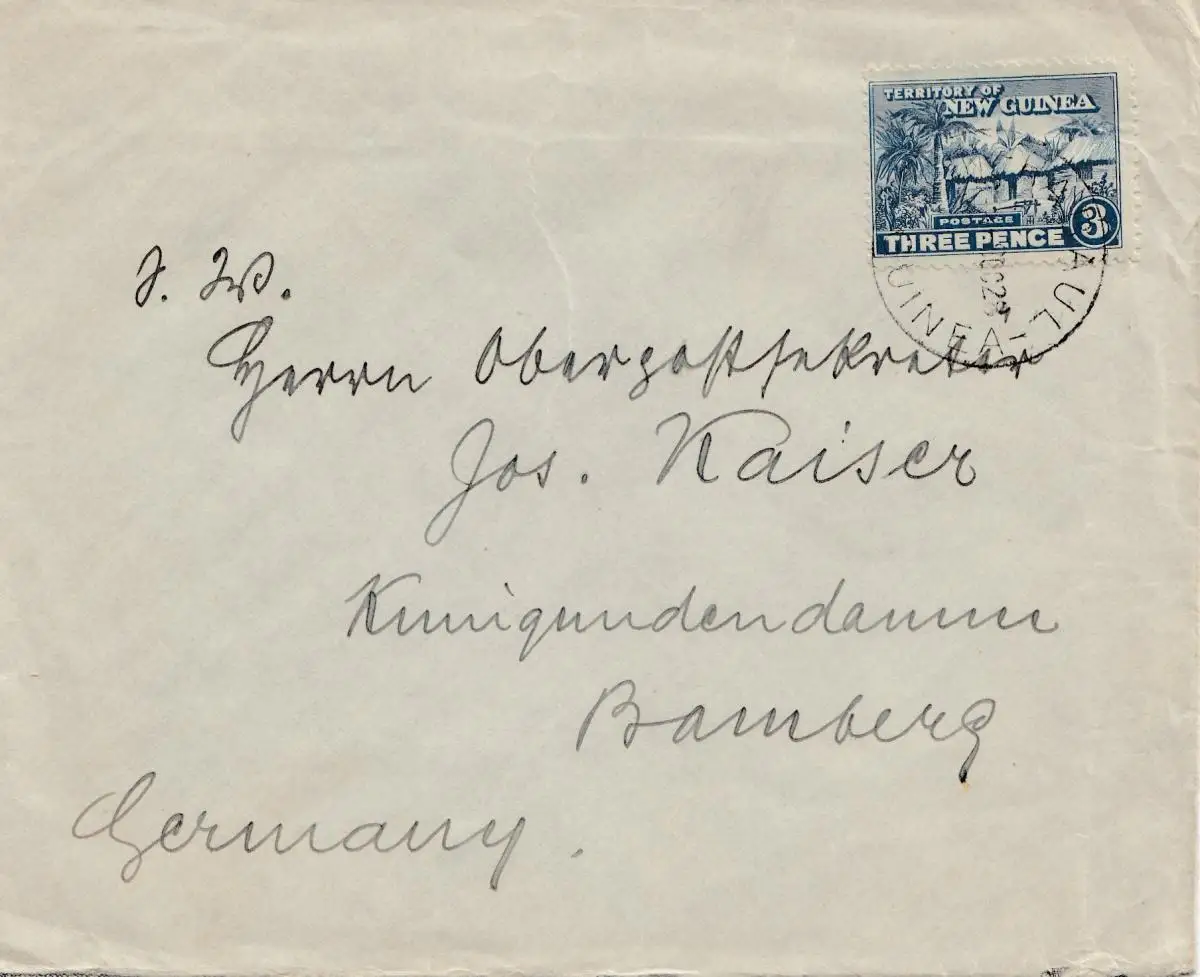 TERRITORY OF
NEW GUINEA
POSTAGE
THREE PENCE 3
AUL-
UINEA
S. W.
Herrn Oberpostsekretär
Jos. Kaiser
Kunigundendamm
Bamberg
Germany.